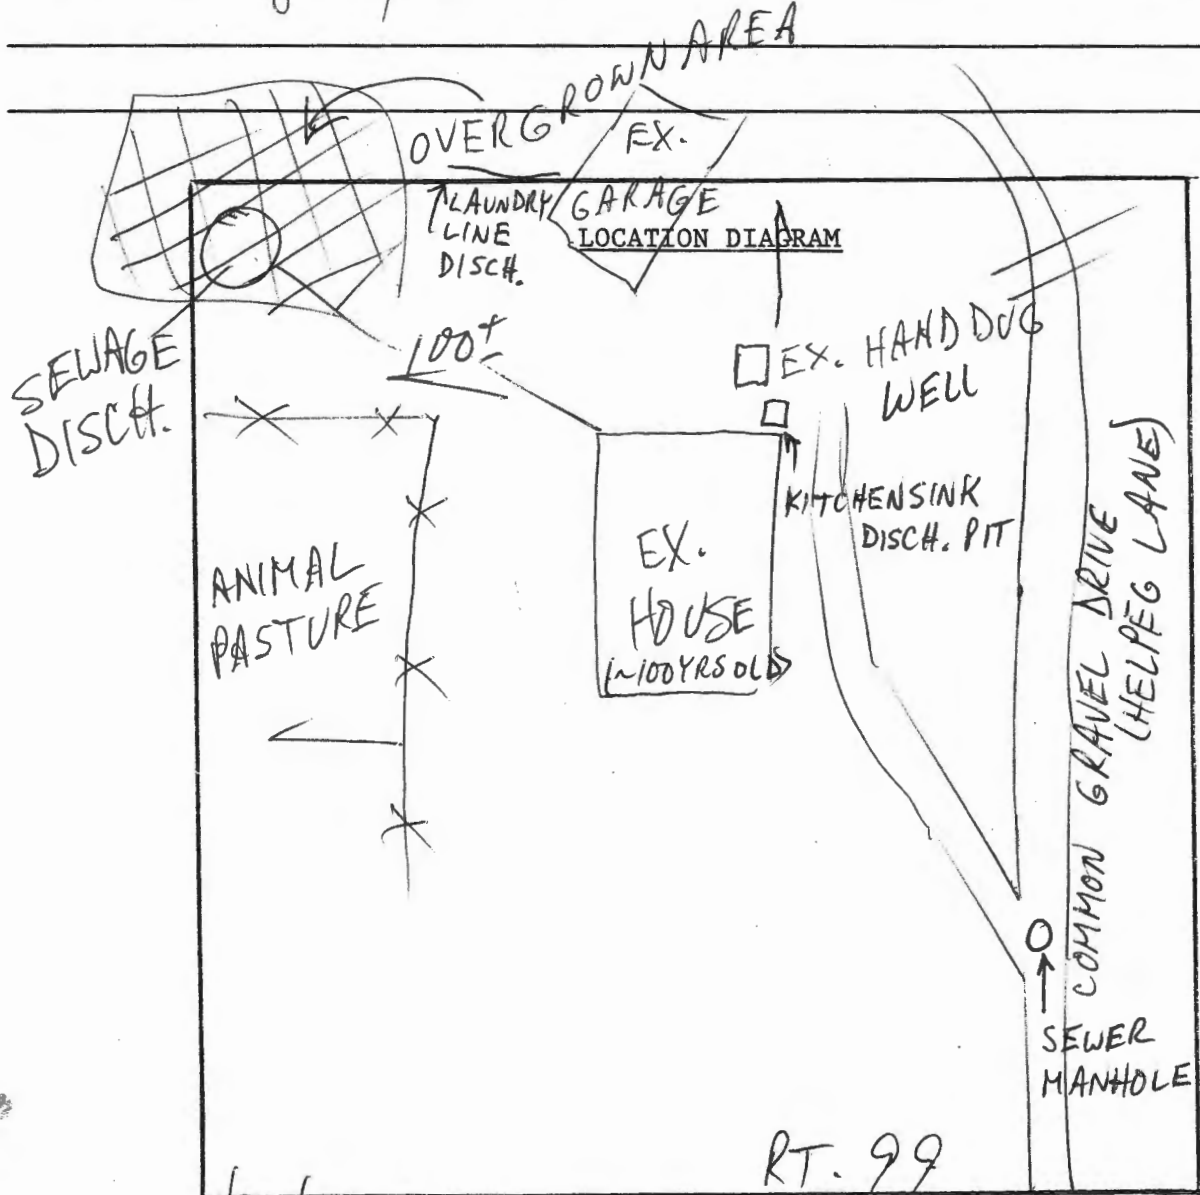 OVERGROWN AREA
EX.
GARAGE
LAUNDRY
LINE
DISCH.
LOCATION DIAGRAM
SEWAGE
DISCH.
100±
EX. HAND DUG
WELL
KITCHEN SINK
DISCH. PIT
ANIMAL
PASTURE
EX.
HOUSE
(~100 YRS OLD)
COMMON GRAVEL DRIVE
(HELPEG LANE)
SEWER
MANHOLE
RT. 99